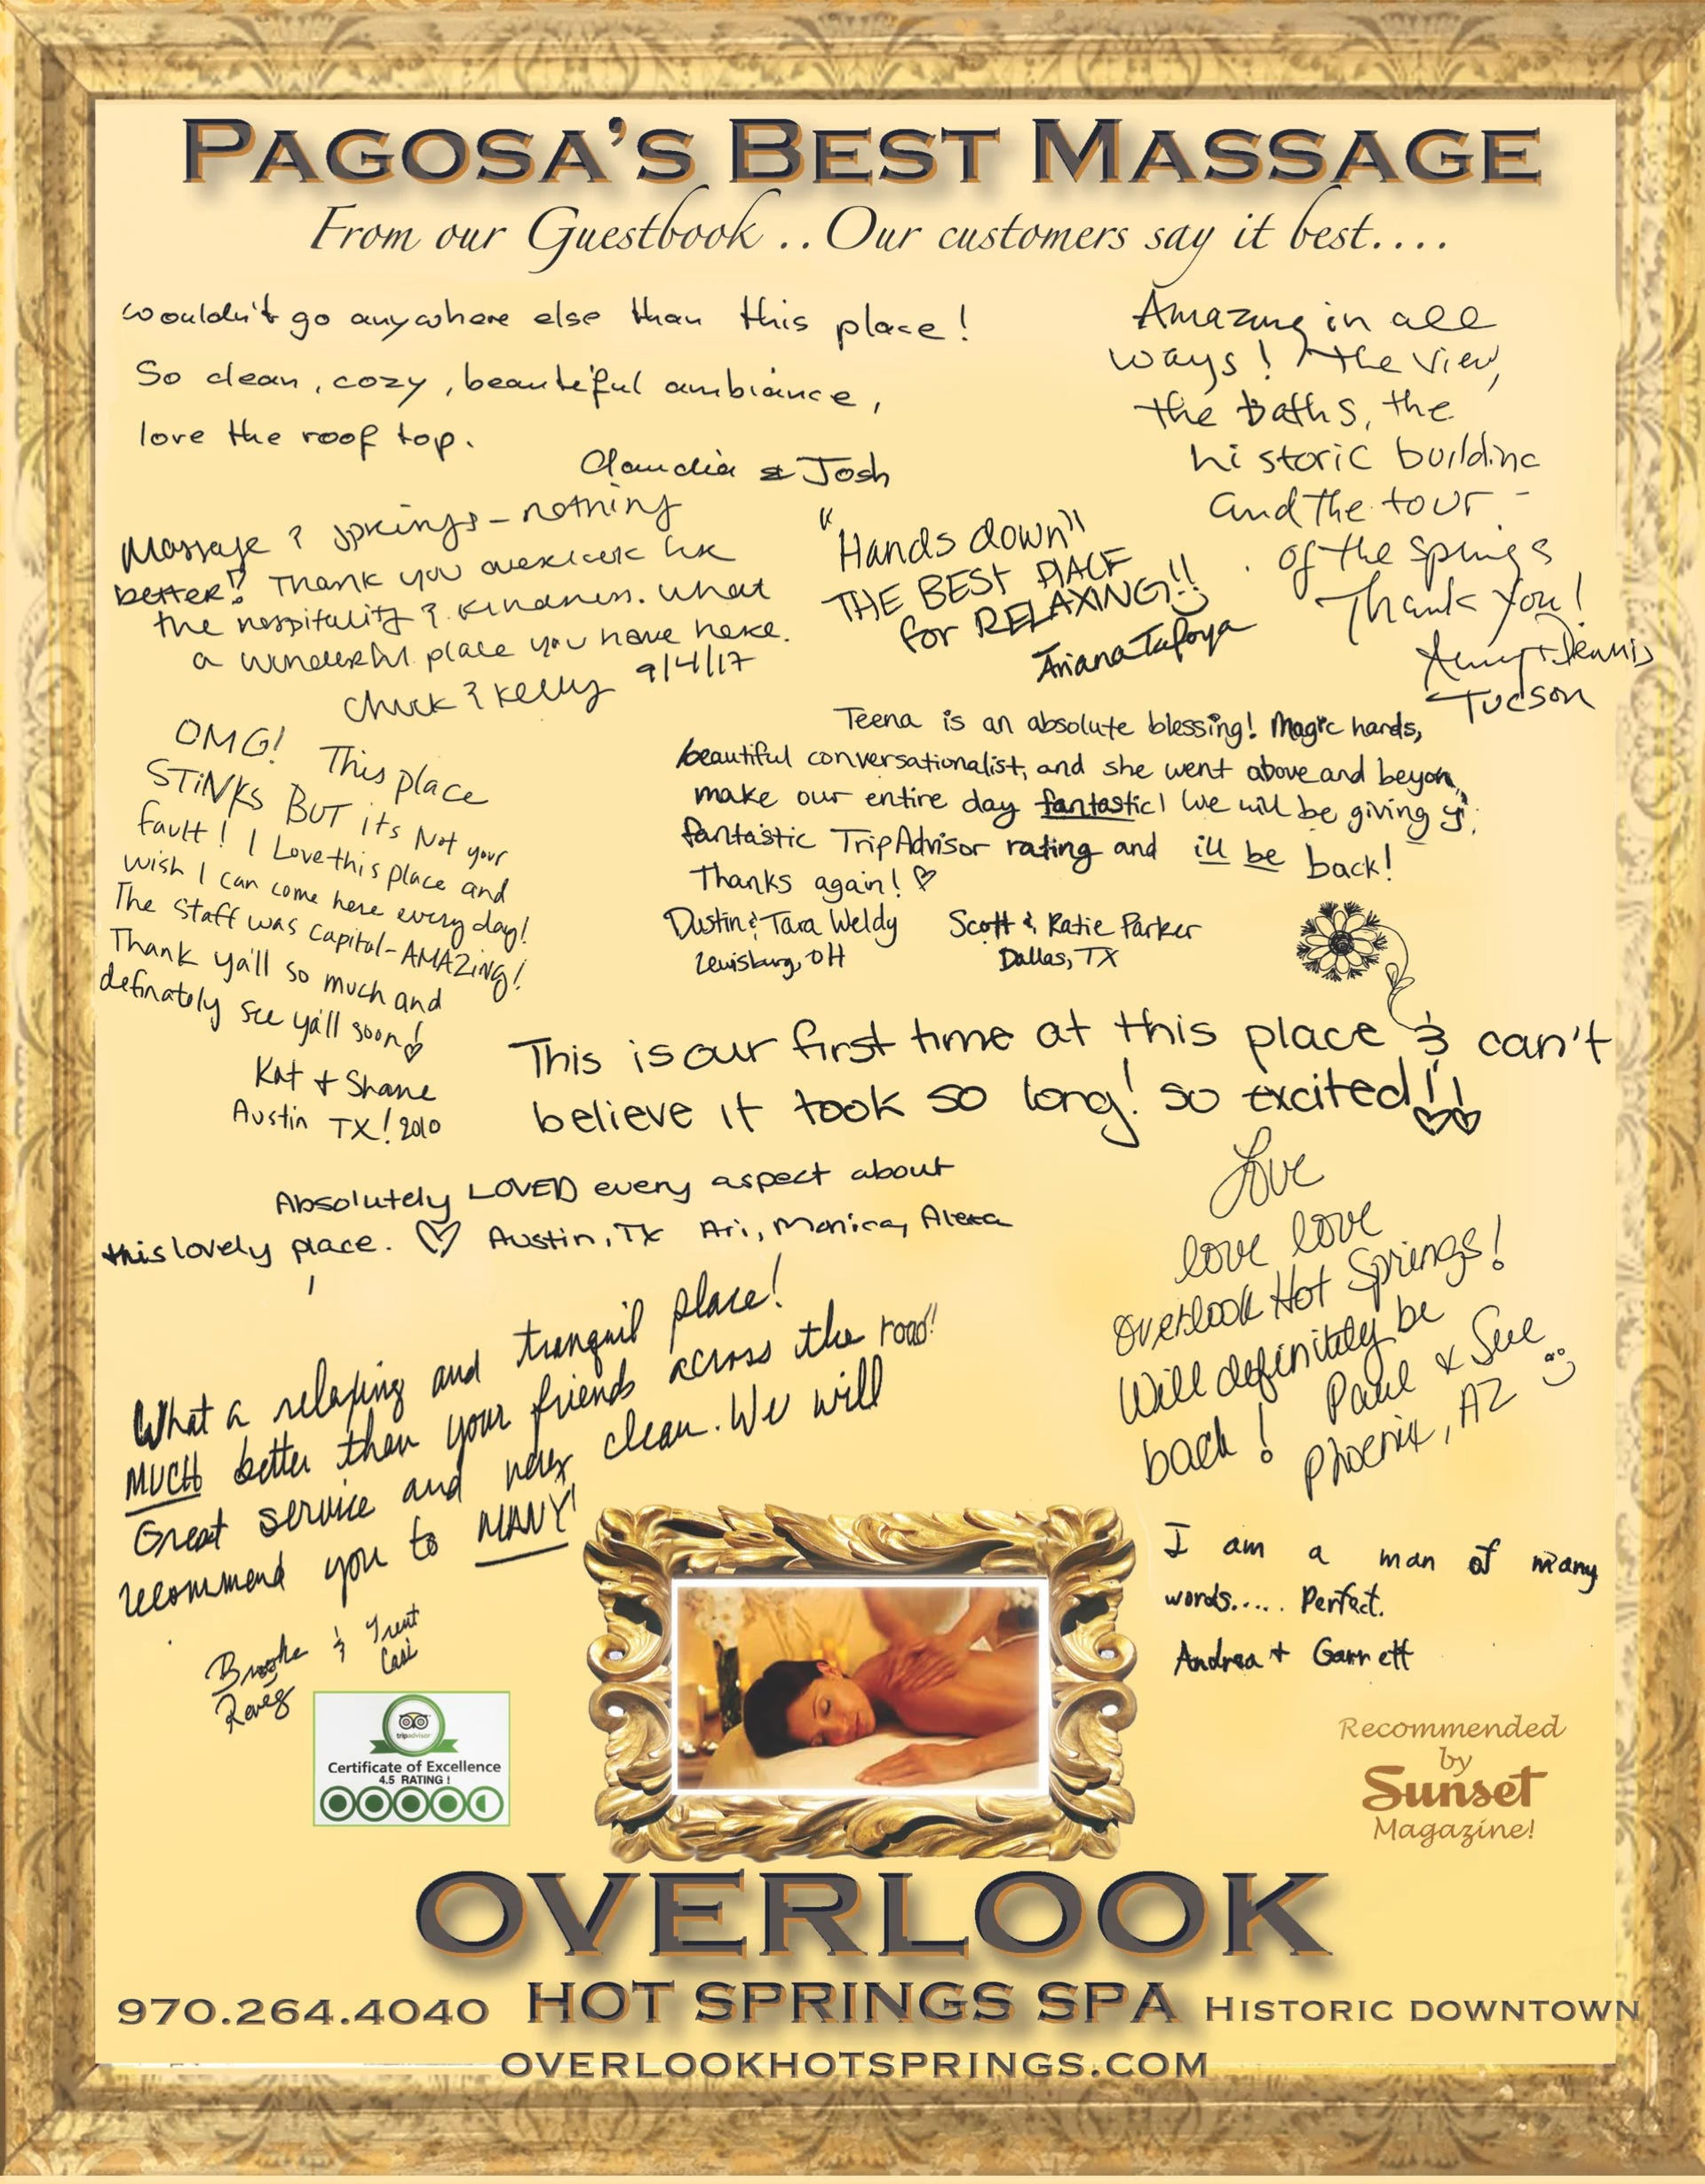 PAGOSA'S BEST MASSAGE
From our Guestbook .. Our customers say it best....
wouldn't go anywhere else than this place!
So clean, cozy, beautiful ambiance,
love the roof top.
Claudia & Josh
Amazing in all
ways! the view,
the baths, the
historic building
and the tour -
of the springs
Thank you!
Dennis
Tucson
Massage & springs - nothing
better! Thank you overlook for
the hospitality & kindness. What
a wonderful place you have here.
Chuck & Kelly 9/4/17
"Hands down"
THE BEST PLACE
for RELAXING!!
Ariana Tafoya
Teena is an absolute blessing! Magic hands,
beautiful conversationalist, and she went above and beyon
make our entire day fantastic! We will be giving y
fantastic TripAdvisor rating and ill be back!
Thanks again! ♡
Dustin & Tara Weldy
Lewisburg, OH
Scott & Katie Parker
Dallas, TX
OMG! This place
STiNKS BUT its Not your
fault! I Love this place and
wish I can come here every day!
The staff was capital-AMAZiNG!
Thank ya'll so much and
definately see ya'll soon! ♡
Kat + Shane
Austin TX! 2010
This is our first time at this place & can't
believe it took so long! so excited!! ♡♡
Absolutely LOVED every aspect about
this lovely place. ♡ Austin, TX Ari, Monica, Alexa
Love
love love
Overlook Hot Springs!
Will definitely be
back! Paul & Sue
Phoenix, AZ
What a relaxing and tranquil place!
MUCH better then your friends across the road!
Great service and very clean. We will
recommend you to MANY!
Brooke & Trent
I am a man of many
words..... Perfect.
Andrea + Garrett
tripadvisor
Certificate of Excellence
4.5 RATING!
Recommended
by
Sunset
Magazine!
OVERLOOK
HOT SPRINGS SPA
970.264.4040
HISTORIC DOWNTOWN
OVERLOOKHOTSPRINGS.COM